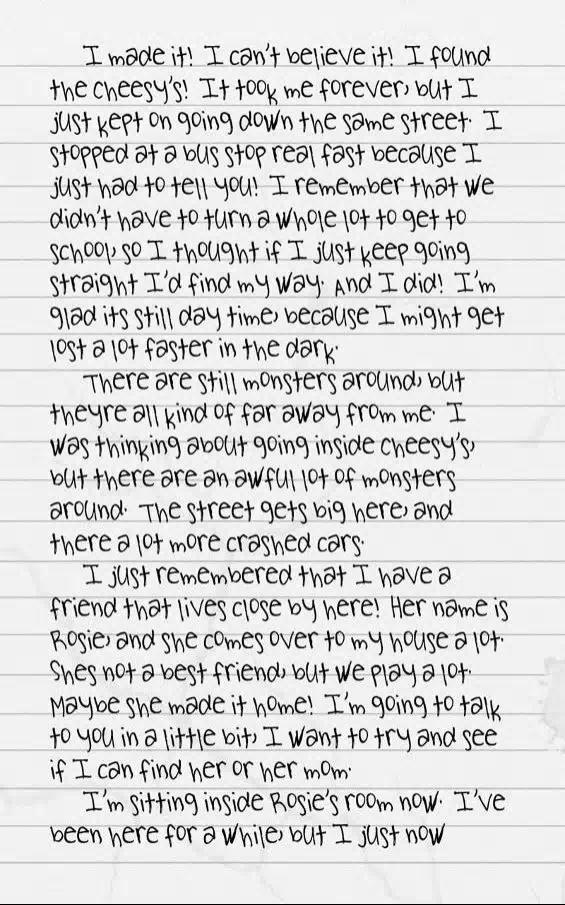 I made it! I can't believe it! I found
the cheesy's! It took me forever, but I
just kept on going down the same street. I
stopped at a bus stop real fast because I
just had to tell you! I remember that we
didn't have to turn a whole lot to get to
school, so I thought if I just keep going
straight I'd find my way. And I did! I'm
glad its still day time, because I might get
lost a lot faster in the dark.
There are still monsters around, but
theyre all kind of far away from me. I
was thinking about going inside cheesy's,
but there are an awful lot of monsters
around. The street gets big here, and
there a lot more crashed cars.
I just remembered that I have a
friend that lives close by here! Her name is
Rosie, and she comes over to my house a lot.
Shes not a best friend, but we play a lot.
Maybe she made it home! I'm going to talk
to you in a little bit, I want to try and see
if I can find her or her mom.
I'm sitting inside Rosie's room now. I've
been here for a while, but I just now